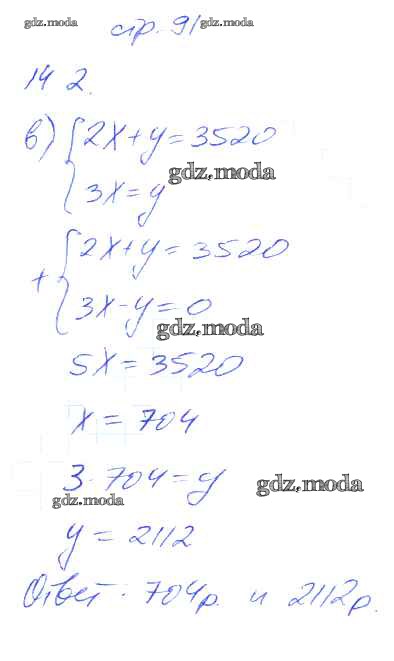 gdz.moda стр. 91 gdz.moda
14 2.
в) { 2x+y=3520
gdz.moda
3x=y
+ { 2x+y=3520
3x-y=0
gdz.moda
5x=3520
x=704
3·704=y gdz.moda
gdz.moda
y=2112
Ответ: 704р. и 2112р.